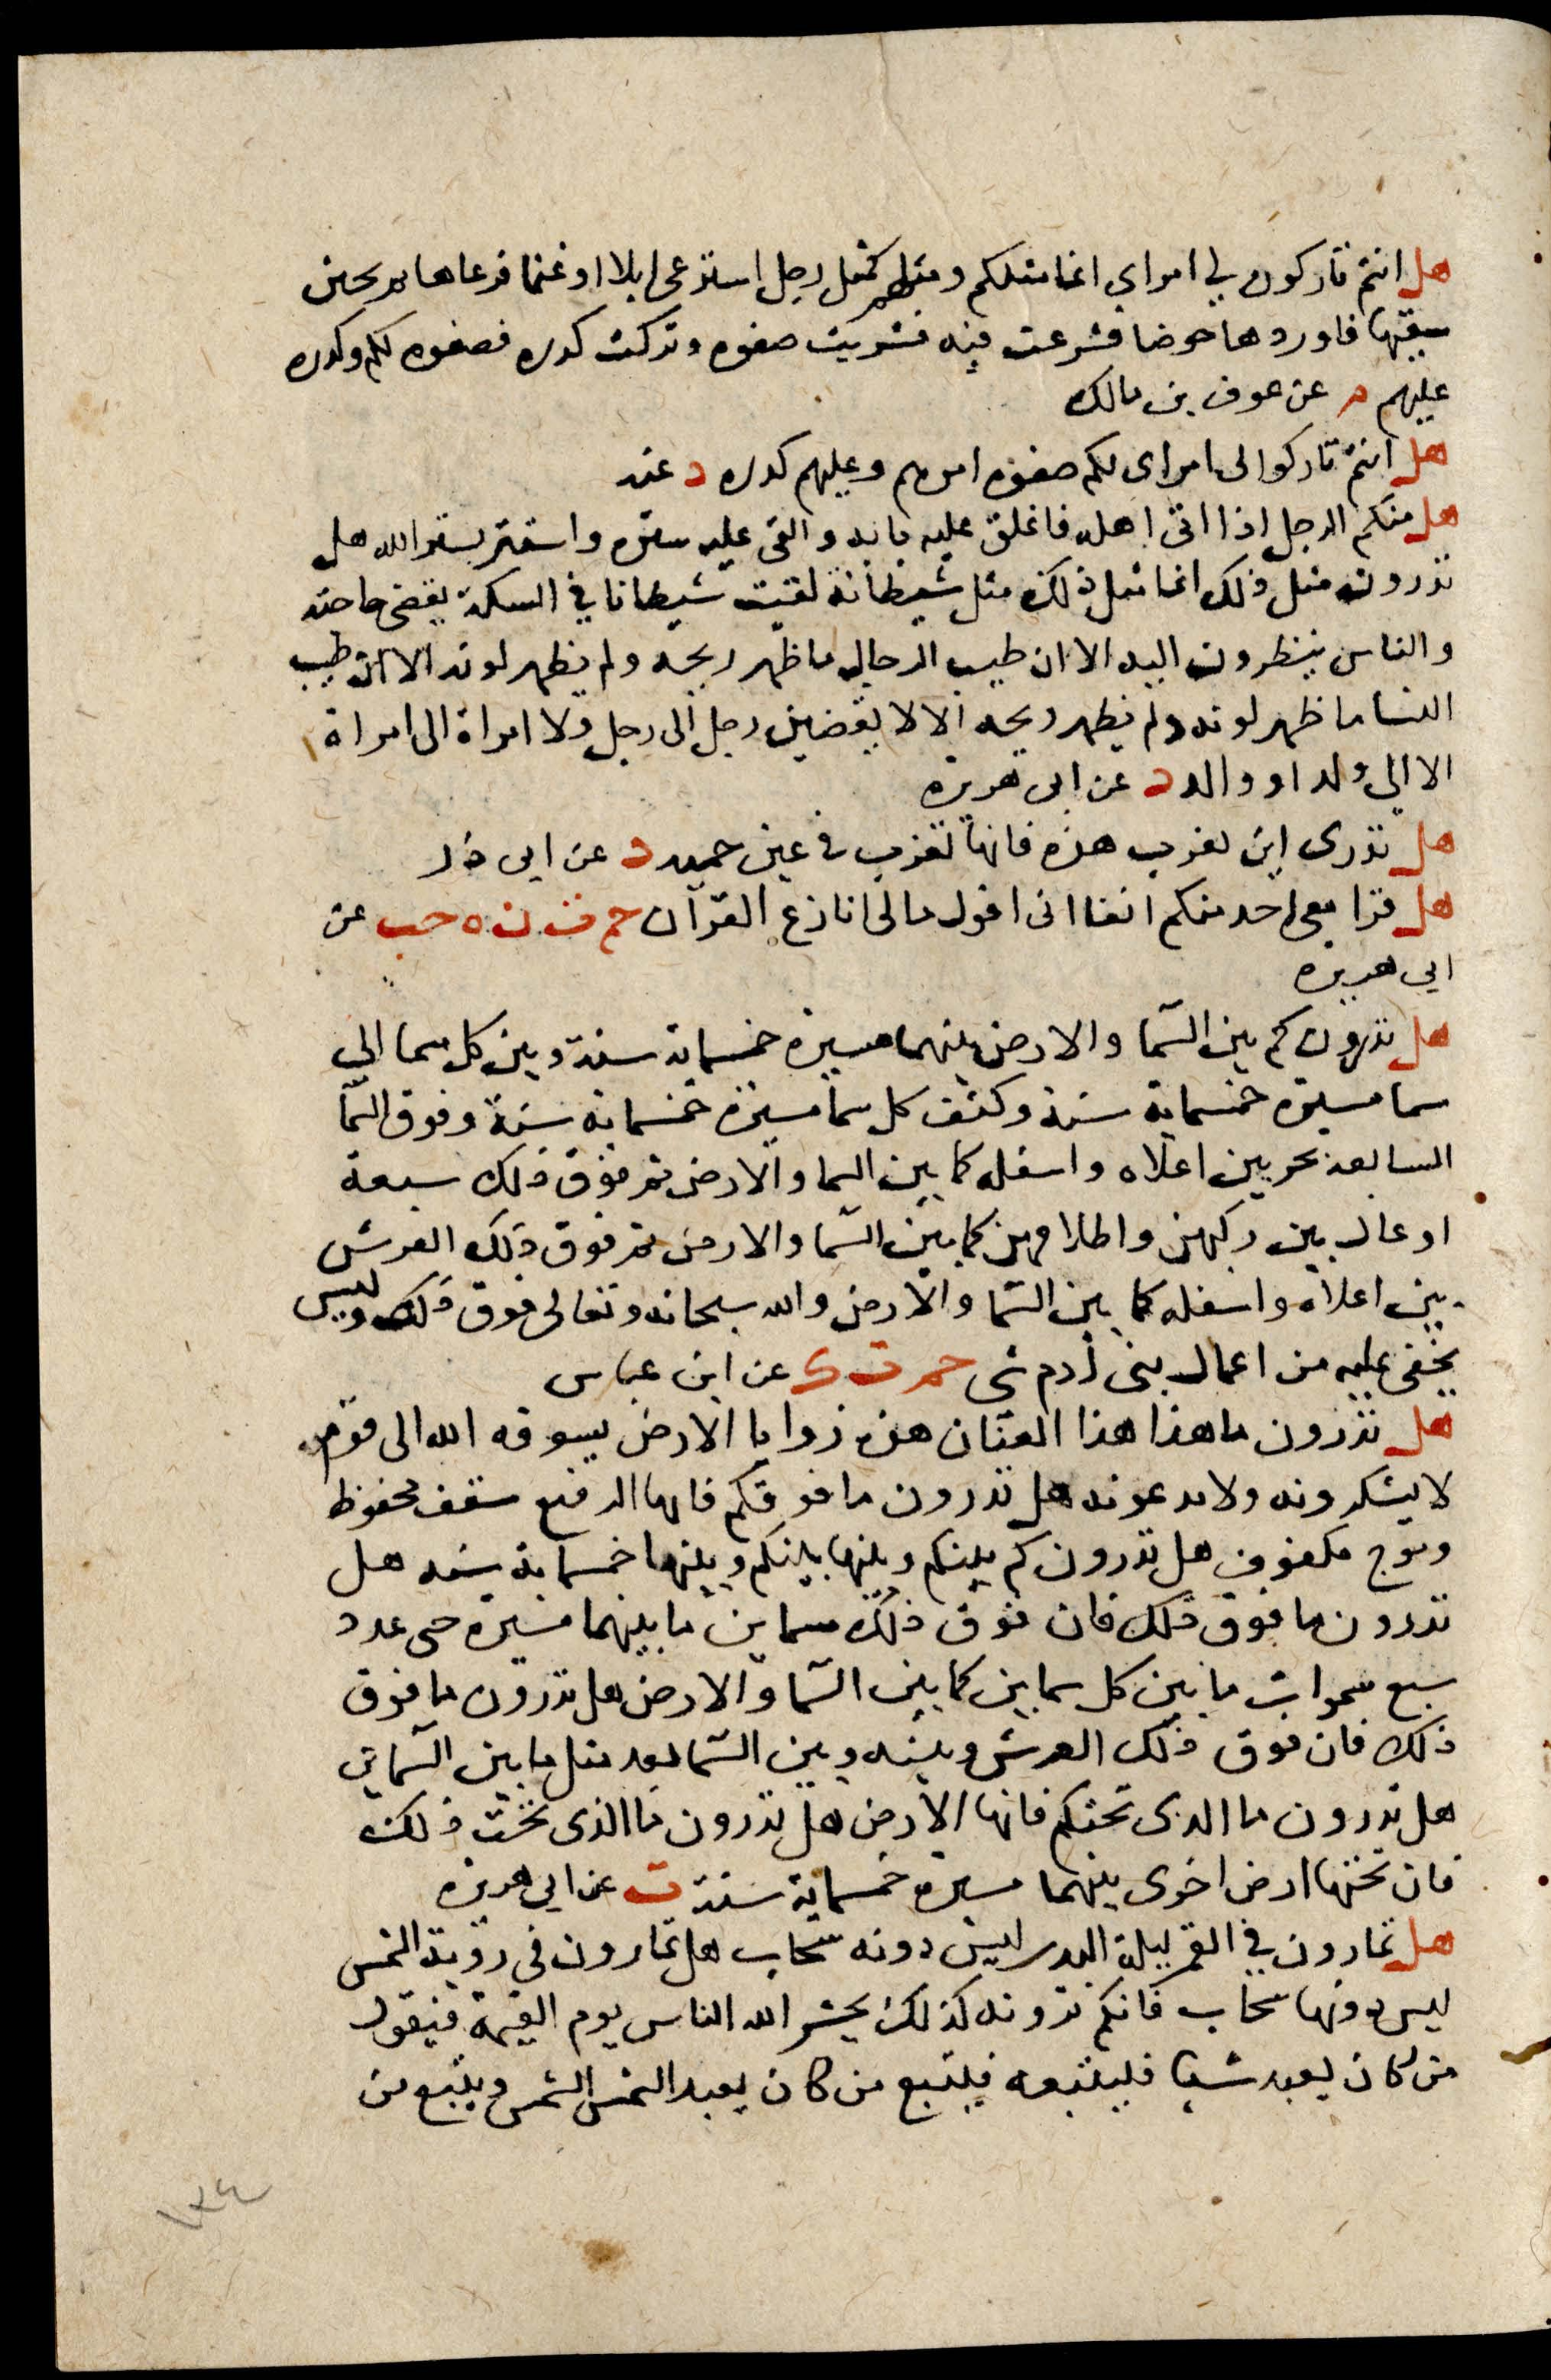 هل انتم تاركون لي امراي انما مثلكم ومثلهم كمثل رجل استرعى ابلا او غنما فرعاها ثم تحين
سقيها فاوردها حوضا فشرعت فيه فشربت صفوه وتركت كدره فصفوه لكم وكدره
عليهم م عن عوف بن مالك
هل انتم تاركوا لى امراى لكم صفوه امرهم وعليهم كدره د عنه
هل منكم الرجل اذا اتى اهله فاغلق عليه بابه والقى عليه ستره واستتر بستر الله هل
تدرون مثل ذلك انما مثل ذلك مثل شيطانة لقيت شيطانا في السكة يقضى حاجته
والناس ينظرون اليه الا ان طيب الرجال ما ظهر ريحه ولم يظهر لونه الا ان طيب
النسا ما ظهر لونه ولم يظهر ريحه الا لا يفضين رجل الى رجل ولا امراة الى امراة
الا الى ولد او والد د عن ابى هريرة
هل تدرى اين تغرب هذه فانها تغرب في عين حميه د عن ابى ذر
هل قرا معى احد منكم انفا انى اقول مالى انازع القرآن حم ت ن ه حب عن
ابي هريرة
هل تدرون كم بين السما والارض بينهما مسيرة خمسماية سنة وبين كل سما الى
سما مسيرة خمسماية سنة وكثف كل سما مسيرة خمسماية سنة وفوق السما
السابعة بحر بين اعلاه واسفله كما بين السما والارض ثم فوق ذلك سبعة
اوعال بين ركبهن واظلافهن كما بين السما والارض ثم فوق ذلك العرش
بين اعلاه واسفله كما بين السما والارض والله سبحانه وتعالى فوق ذلك وليس
يخفى عليه من اعمال بنى آدم شى حم ت ك عن ابن عباس
هل تدرون ما هذا هذا العنان هذه زوايا الارض يسوقه الله الى قوم
لا يشكرونه ولا يدعونه هل تدرون ما فوقكم فانها الرفيع سقف محفوظ
وموج مكفوف هل تدرون كم بينكم وبينها بينكم وبينها خمسماية سنه هل
تدرون ما فوق ذلك فان فوق ذلك سماين ما بينهما مسيرة حتى عدد
سبع سموات ما بين كل سماين كما بين السما والارض هل تدرون ما فوق
ذلك فان فوق ذلك العرش وبينه وبين السما بعد مثل ما بين السماين
هل تدرون ما الذى تحتكم فانها الارض هل تدرون ما الذى تحت ذلك
فان تحتها ارض اخرى بينهما مسيرة خمسماية سنة ت عن ابي هريرة
هل تمارون في القمر ليلة البدر ليس دونه سحاب هل تمارون فى روية الشمس
ليس دونها سحاب فانكم ترونه كذلك يحشر الله الناس يوم القيمة فيقول
من كان يعبد شيا فليتبعه فيتبع من كان يعبد الشمس الشمس ويتبع من
١٣٤